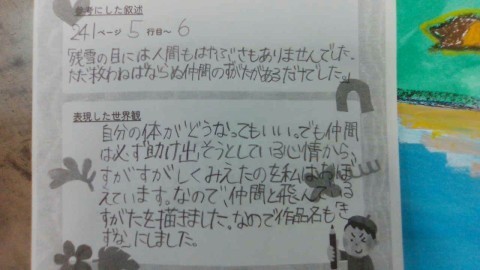 参考にした叙述
241ページ 5 行目〜 6
「残雪の目には人間もはやぶさもありませんでした。
ただ救わねばならぬ仲間のすがたがあるだけでした。」
表現した世界観
自分の体がどうなってもいい。でも仲間
は必ず助け出そうとしている心情から、
すがすがしくみえたのを私はおぼ
えています。なので仲間と飛んでいる
すがたを描きました。なので作品名も「き
ずな」にしました。